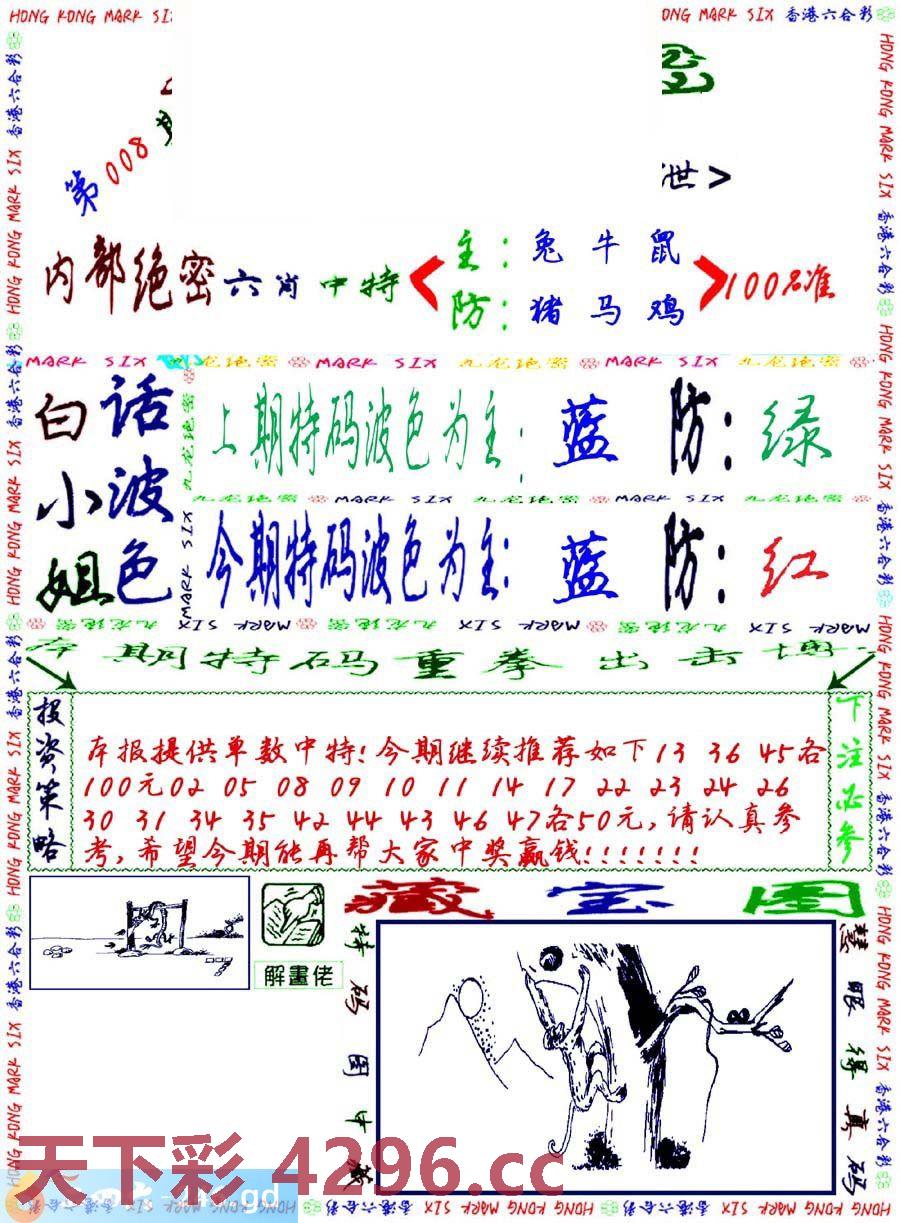 HONG KONG MARK SI
ONG MARK SIX 香港六合彩
第008
泄>
内部绝密六肖中特
主:兔牛鼠
防:猪马鸡
100%准
MARK SIX 九龙绝密 MARK SIX 九龙绝密 MARK SIX 九龙绝密
白小姐
话波色
上期特码波色为主:蓝 防:绿
九龙绝密 MARK SIX 九龙绝密 MARK SIX 九龙绝密
今期特码波色为主:蓝 防:红
期特码重拳出击
投资策略
本报提供单数中特!今期继续推荐如下13 36 45各
100元02 05 08 09 10 11 14 17 22 23 24 26
30 31 34 35 42 44 43 46 47各50元,请认真参
考,希望今期能再帮大家中奖赢钱!!!!!!!
下注必参
藏宝图
解畫佬
特码图中藏
慧眼得真码
天下彩 4296.cc